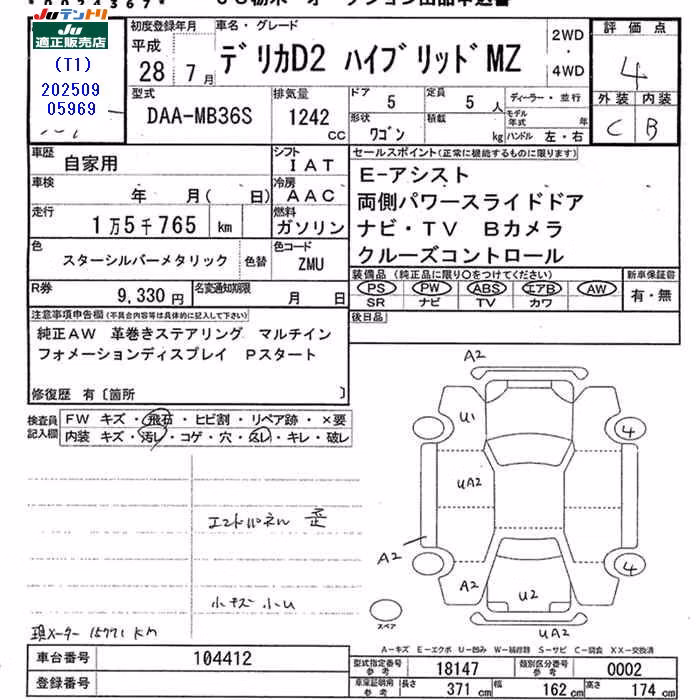 JUテントリ
JU
適正販売店
(T1)
202509
05969
初度登録年月
平成
28 7月
車名・グレード
デリカD2 ハイブリッドMZ
2WD
・
4WD
評価点
4
外装 内装
C B
型式
DAA-MB36S
排気量
1242
CC
ドア
5
定員
5人
形状
ワゴン
積載
kg
ディーラー・並行
モデル年式 年
ハンドル 左・右
車歴
自家用
シフト
IAT
車検
年 月( 日)
冷房
AAC
走行
1万5千765 km
燃料
ガソリン
色
スターシルバーメタリック
色替
色コード
ZMU
R券
9,330円
名変通知期限
月 日
セールスポイント(正常に機能するものに限ります)
E-アシスト
両側パワースライドドア
ナビ・TV Bカメラ
クルーズコントロール
装備品(純正品に限り○をつけてください)
PS PW ABS エアB AW
SR ナビ TV カワ
新車保証書
有・無
後日品
注意事項申告欄(不具合内容等は具体的に記入して下さい)
純正AW 革巻きステアリング マルチイン
フォメーションディスプレイ Pスタート
修復歴 有〔箇所 〕
検査員
記入欄
FW キズ・飛石・ヒビ割・リペア跡・×要
内装 キズ・汚レ・コゲ・穴・スレ・キレ・破レ
エンドパネル 歪
小キズ小U
現メーター 15771 km
A2
U1
4
UA2
UA2
A2
4
A2
U2
UA2
スペア
A-キズ E-エクボ U-凹み W-補修跡 S-サビ C-腐食 XX-交換済
車台番号
104412
登録番号
型式指定番号
参考
18147
類別区分番号
参考
0002
車庫証明用
参考
長さ 371cm
幅 162cm
高さ 174cm